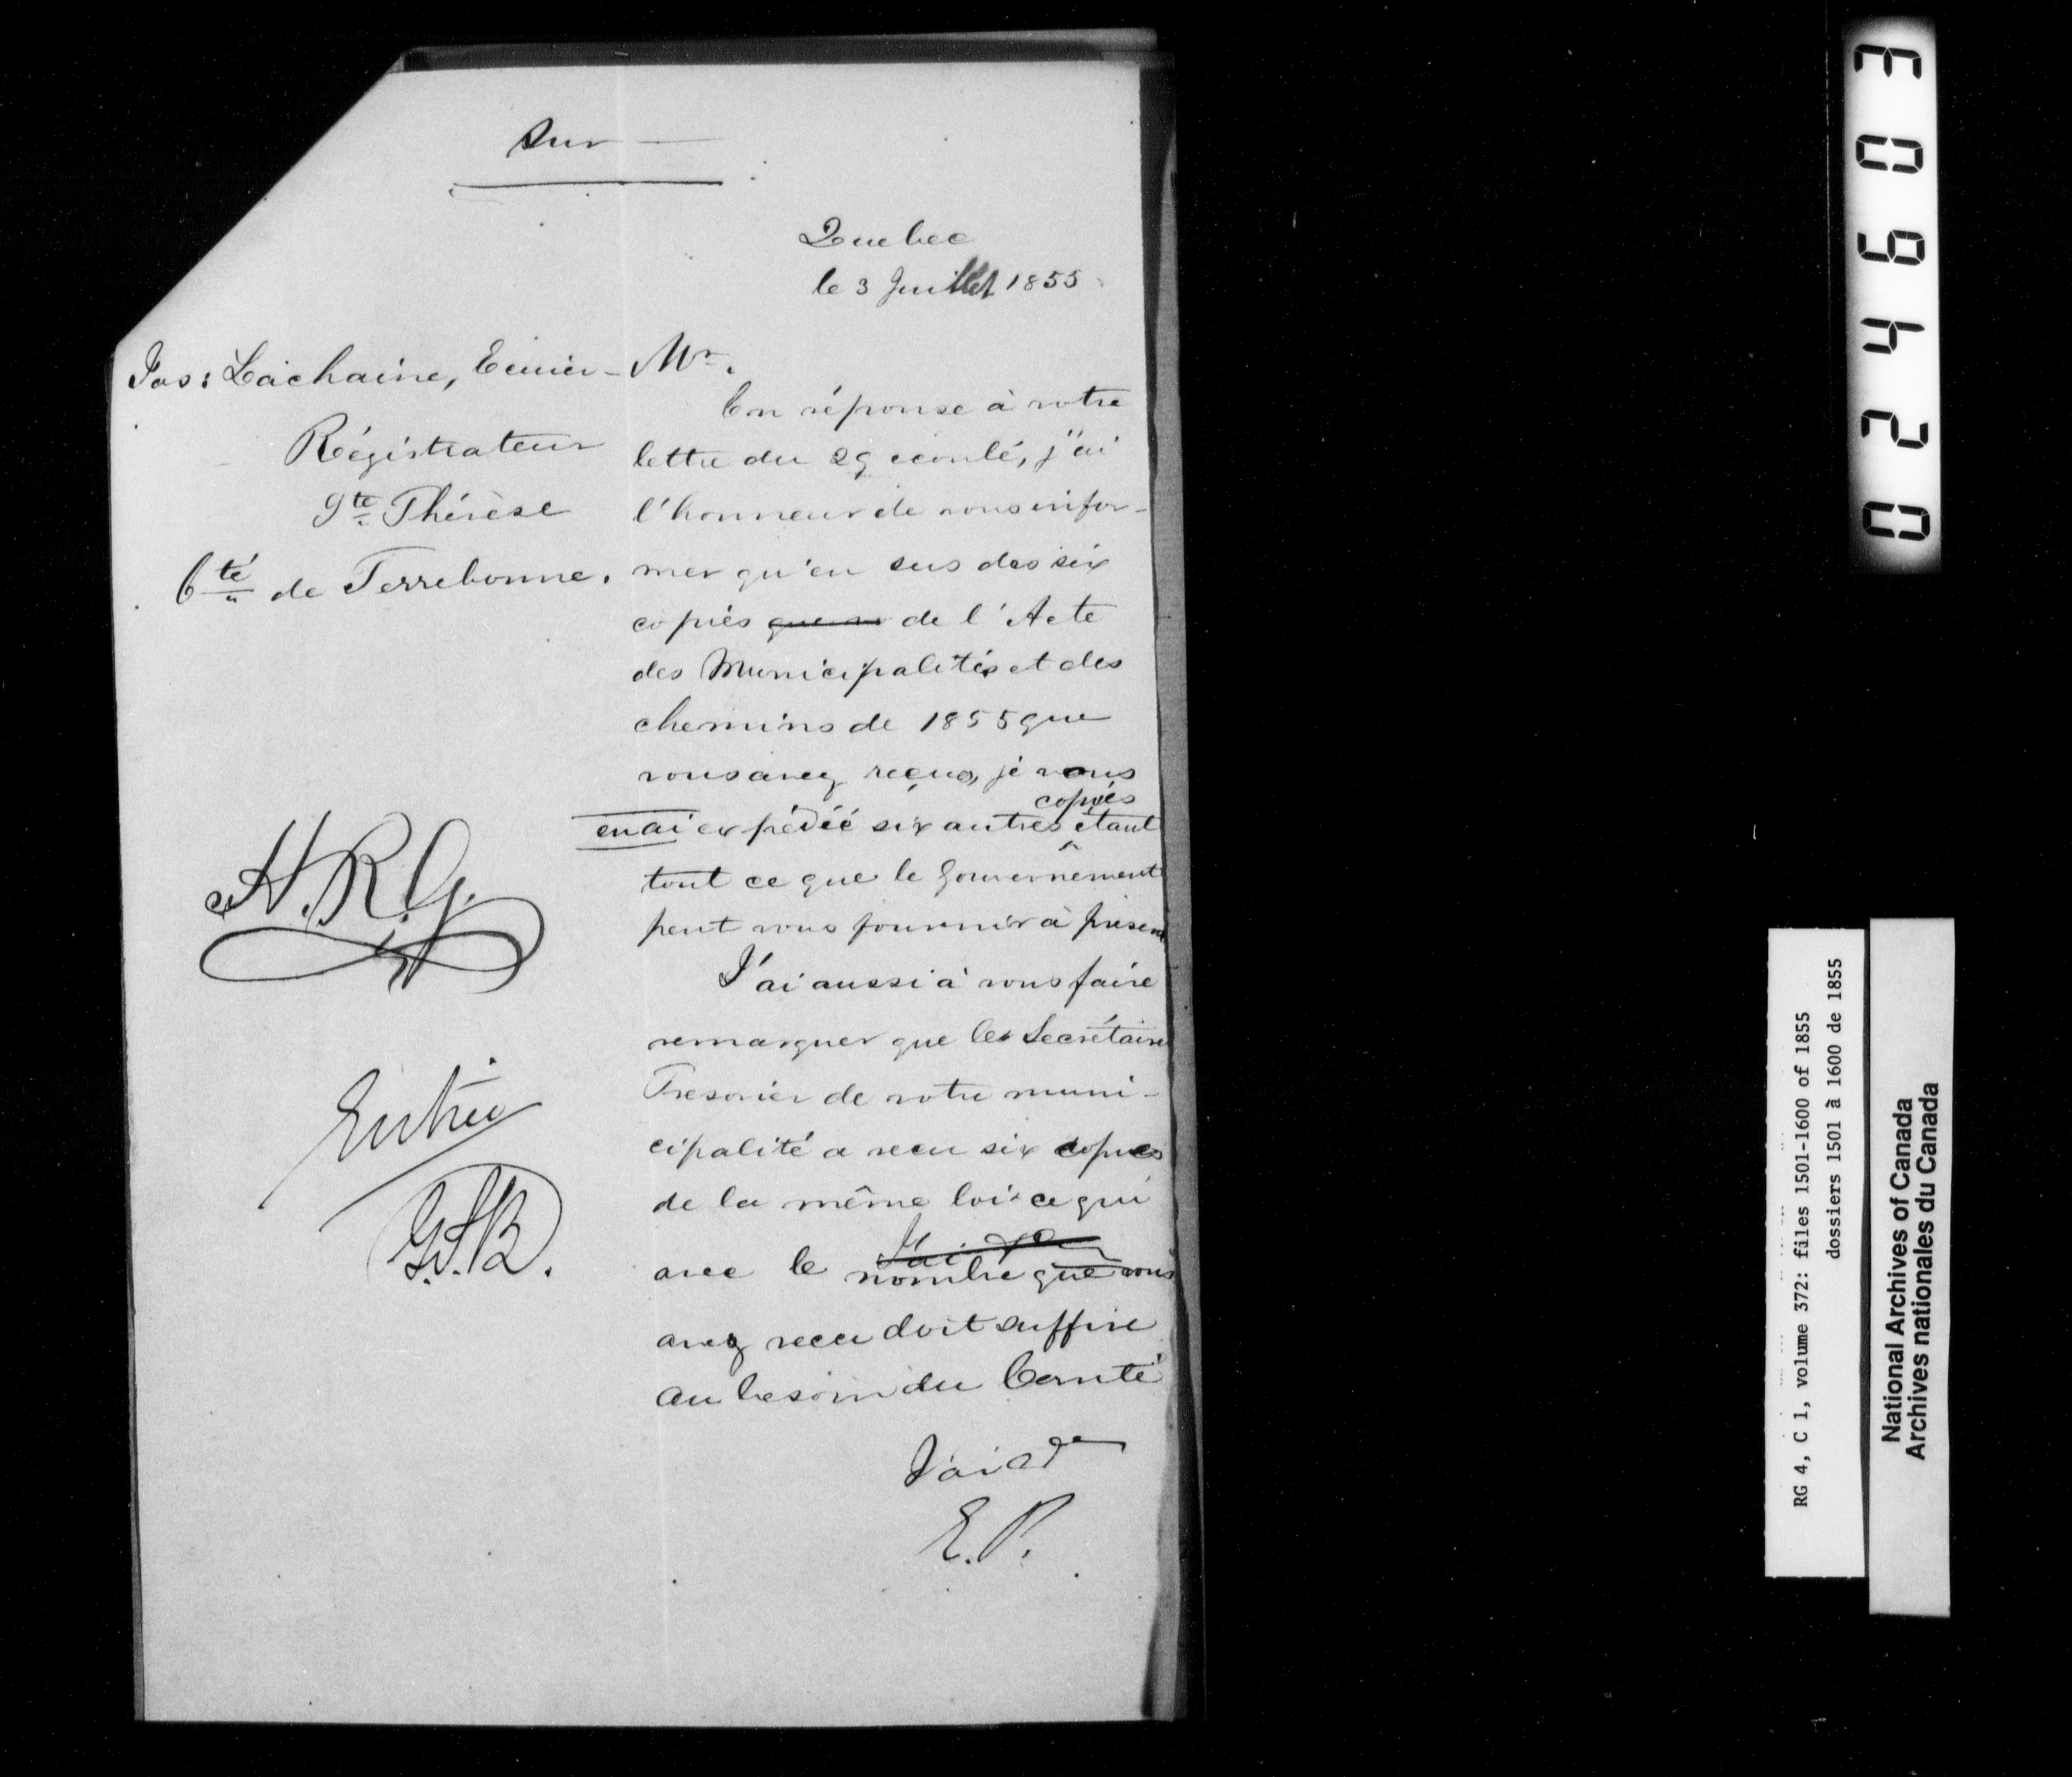 Sur —
Quebec
le 3 Juillet 1855
Jos: Lachaine, Ecuier -
Régistrateur
Ste. Thérèse
Cté de Terrebonne.
Mr.
En réponse à votre
lettre du 29 écoulé, j'ai
l'honneur de vous infor-
mer qu'en sus des six
copiés de l'Acte
des Municipalités et des
chemins de 1855 que
vous avez reçus, je vous
copiés
en ai expédié six autres étant
tout ce que le Gouvernement
peut vous fournir à présent
J'ai aussi à vous faire
remarquer que le Secrétaire
Tresorier de votre muni-
cipalité a recu six copies
de la même loi ce qui
J'ai
avec le nombre que vous
avez recu doit suffire
au besoin du Comté
J'ai &a
E. P.
H. R. G.
Entrée
G.S.B.
024603
RG 4, C 1, volume 372: files 1501-1600 of 1855
dossiers 1501 à 1600 de 1855
National Archives of Canada
Archives nationales du Canada